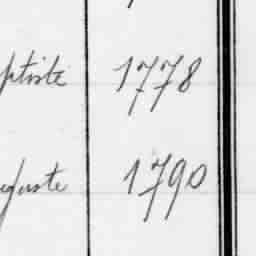 ptiste 1778
guste 1790